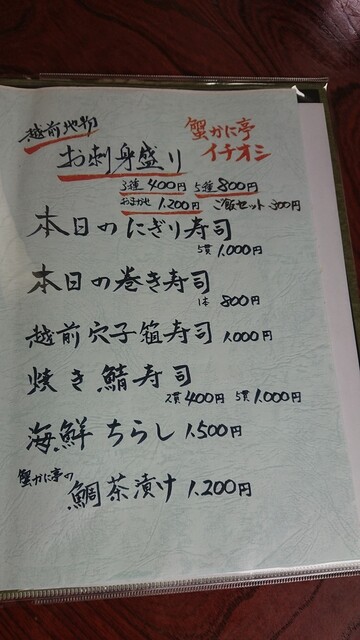 越前地物
蟹かに亭
イチオシ
お刺身盛り
3種 400円 5種 800円
おまかせ 1.200円 ご飯セット 300円
本日のにぎり寿司
5貫 1.000円
本日の巻き寿司
1本 800円
越前穴子箱寿司 1.000円
焼き鯖寿司
2貫 400円 5貫 1.000円
海鮮ちらし 1.500円
蟹かに亭の
鯛茶漬け 1.200円